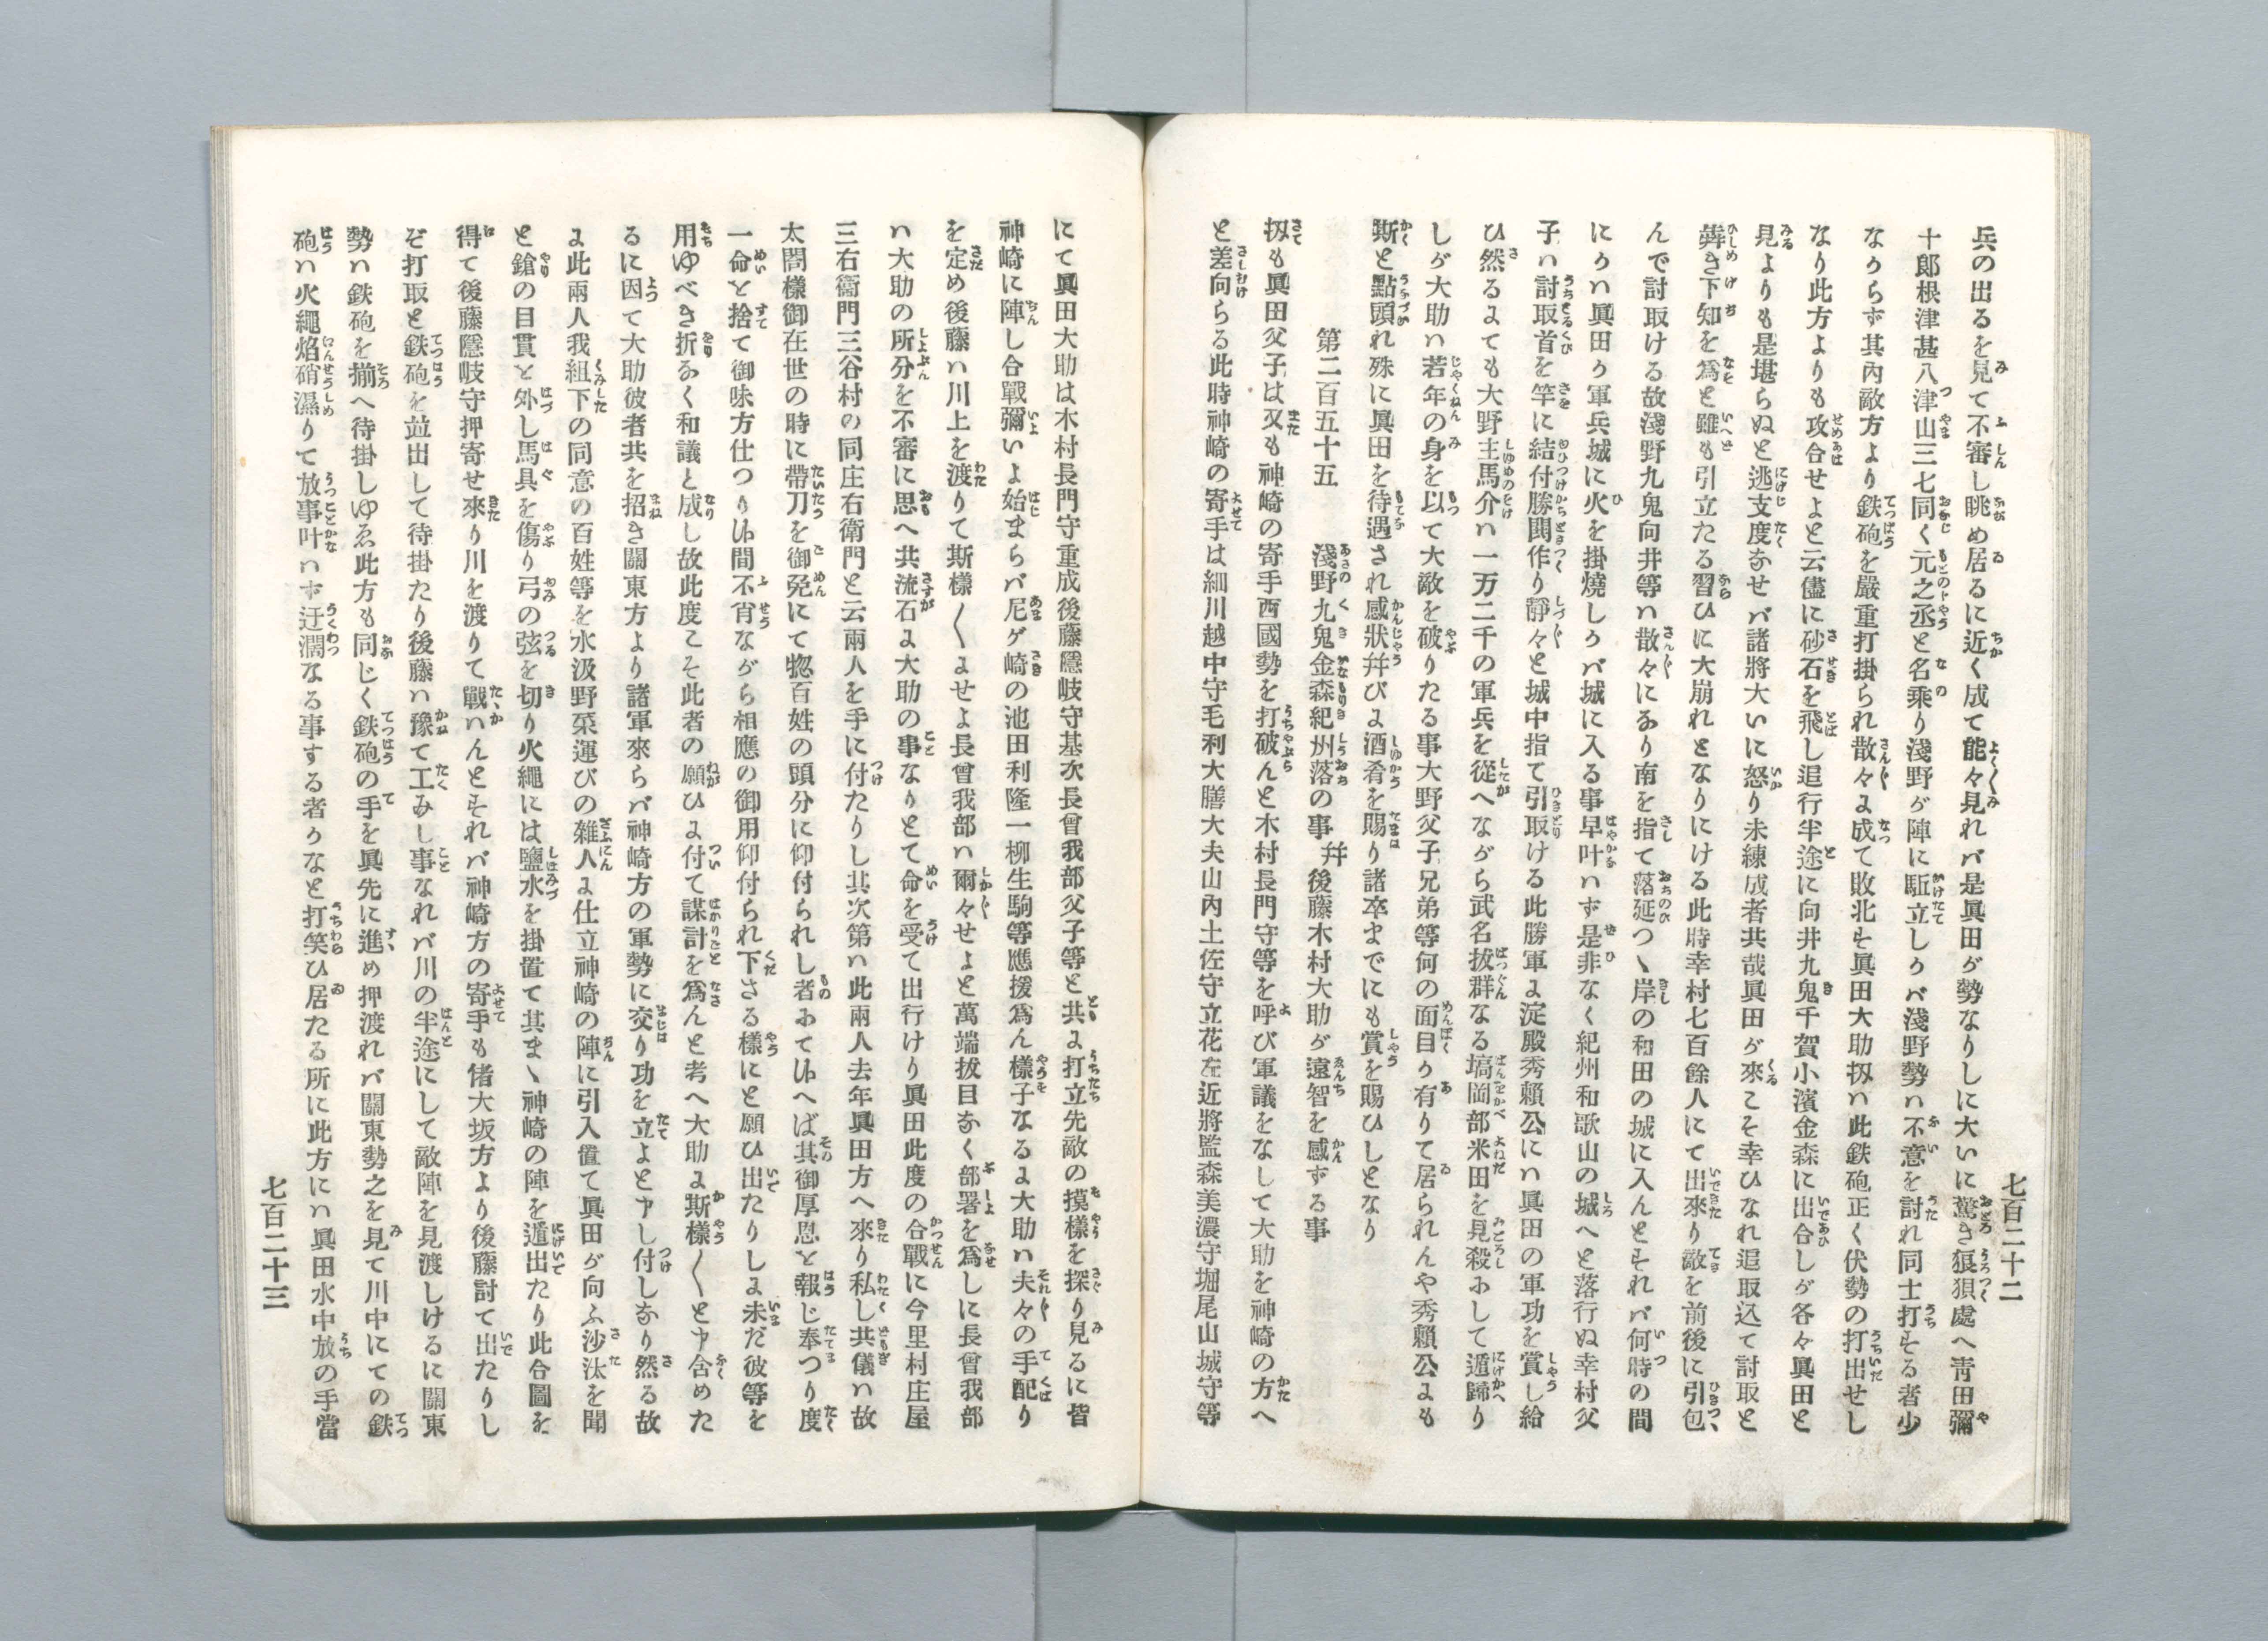 七百二十二
兵の出るを見て不審し眺め居るに近く成て能々見れバ是眞田が勢なりしに大いに驚き狼狽處へ靑田彌
十郎根津甚八津山三七同く元之丞と名乘り淺野が陣に駈立しかバ淺野勢ハ不意を討れ同士打する者少
なからず其內敵方より鉄砲を嚴重打掛られ散々に成て敗北す眞田大助扨ハ此鉄砲正く伏勢の打出せし
なり此方よりも攻合せよと云儘に砂石を飛し追行半途に向井九鬼千賀小濱金森に出合しが各々眞田と
見るよりも是堪らぬと逃支度なせバ諸將大いに怒り未練成者共哉眞田が來こそ幸ひなれ追取込て討取と
犇き下知を爲と雖も引立たる習ひに大崩れとなりにける此時幸村七百餘人にて出來り敵を前後に引包
んで討取ける故淺野九鬼向井等ハ散々になり南を指て落延つゝ岸の和田の城に入んとすれバ何時の間
にかハ眞田か軍兵城に火を掛燒しかバ城に入る事早叶ハず是非なく紀州和歌山の城へと落行ぬ幸村父
子ハ討取首を竿に結付勝鬨作り靜々と城中指て引取ける此勝軍に淀殿秀賴公にハ眞田の軍功を賞し給
ひ然るにても大野主馬介ハ一万二千の軍兵を從へながら武名拔群なる塙岡部米田を見殺にして遁歸り
しが大助ハ若年の身を以て大敵を破りたる事大野父子兄弟等何の面目か有りて居られんや秀賴公にも
斯と點頭れ殊に眞田を待遇され感狀幷びに酒肴を賜り諸卒までにも賞を賜ひしとなり
第二百五十五　淺野九鬼金森紀州落の事幷後藤木村大助が遠智を感ずる事
扨も眞田父子は又も神崎の寄手西國勢を打破んと木村長門守等を呼び軍議をなして大助を神崎の方へ
と差向らる此時神崎の寄手は細川越中守毛利大膳大夫山內土佐守立花左近將監森美濃守堀尾山城守等
にて眞田大助は木村長門守重成後藤隱岐守基次長曾我部父子等と共に打立先敵の摸樣を探り見るに皆
神崎に陣し合戰彌いよ始まらバ尼ゲ崎の池田利隆一柳生駒等應援爲ん樣子なるに大助ハ夫々の手配り
を定め後藤ハ川上を渡りて斯樣〱にせよ長曾我部ハ爾々せよと萬端拔目なく部署を爲しに長曾我部
ハ大助の所分を不審に思へ共流石に大助の事なりとて命を受て出行けり眞田此度の合戰に今里村庄屋
三右衞門三谷村の同庄右衛門と云兩人を手に付たりし其次第ハ此兩人去年眞田方へ來り私し共儀ハ故
太閤樣御在世の時に帶刀を御免にて惣百姓の頭分に仰付られし者にて候へば其御厚恩を報じ奉つり度
一命を捨て御味方仕つり候間不肖ながら相應の御用仰付られ下さる樣にと願ひ出たりしに未だ彼等を
用ゆべき折なく和議と成し故此度こそ此者の願ひに付て謀計を爲んと考へ大助に斯樣〱と申含めた
るに因て大助彼者共を招き關東方より諸軍來らバ神崎方の軍勢に交り功を立よと申し付しなり然る故
に此兩人我組下の同意の百姓等を水汲野菜運びの雜人に仕立神崎の陣に引入置て眞田が向ふ沙汰を聞
と鎗の目貫を外し馬具を傷り弓の弦を切り火繩には鹽水を掛置て其まゝ神崎の陣を遁出たり此合圖を
得て後藤隱岐守押寄せ來り川を渡りて戰ハんとすれバ神崎方の寄手も偖大坂方より後藤討て出たりし
ぞ打取と鉄砲を並出して待掛たり後藤ハ豫て工みし事なれバ川の半途にして敵陣を見渡しけるに關東
勢ハ鉄砲を揃へ待掛しゆゑ此方も同じく鉄砲の手を眞先に進め押渡れバ關東勢之を見て川中にての鉄
砲ハ火繩焰硝濕りて放事叶ハず迂濶なる事する者かなと打笑ひ居たる所に此方にハ眞田水中放の手當
七百二十三